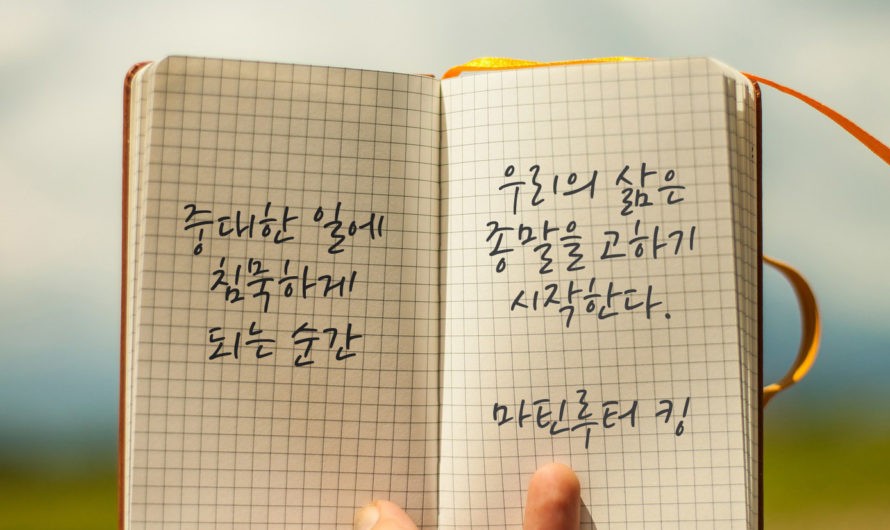 중대한 일에
침묵하게
되는 순간
우리의 삶은
종말을 고하기
시작한다.
마틴루터 킹